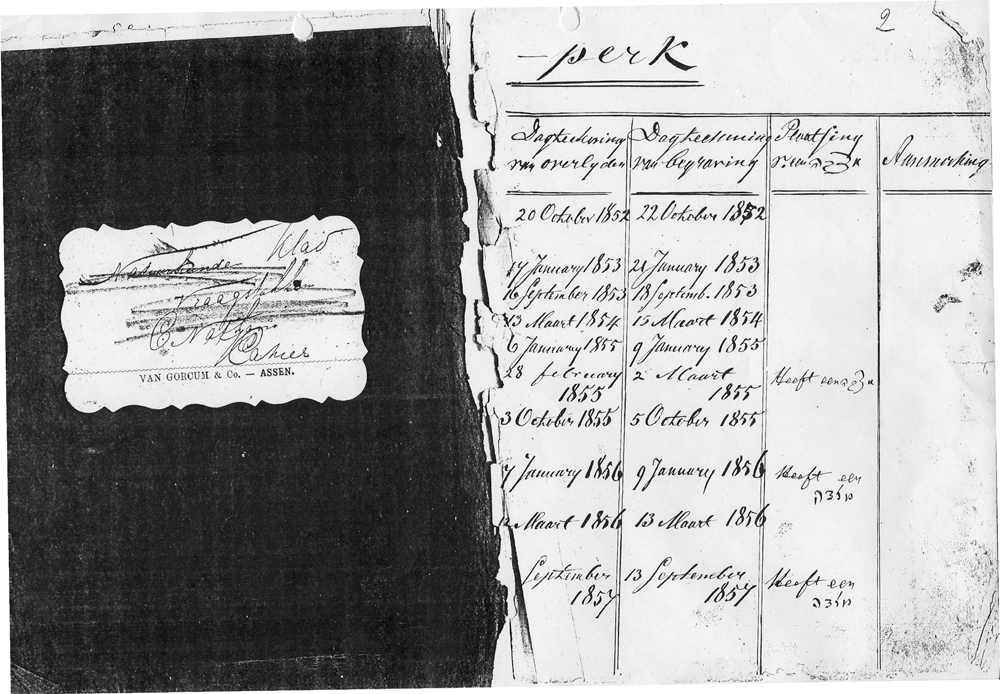 Klad
Natuurkunde
Vraagstukken
Cahier
VAN GORCUM & Co. — ASSEN.
2
— perk
Dagteekening van overlyden
Dagteekening van begraving
Plaatsing van een מצבה
Aanmerking
20 October 1852 22 October 1852
17 January 1853 21 January 1853
16 September 1853 18 Septemb. 1853
13 Maart 1854 15 Maart 1854
6 January 1855 9 January 1855
28 february 1855 2 Maart 1855 Heeft een מצבה
3 October 1855 5 October 1855
7 January 1856 9 January 1856 Heeft een מצבה
12 Maart 1856 13 Maart 1856
September 1857 13 September 1857 Heeft een מצבה